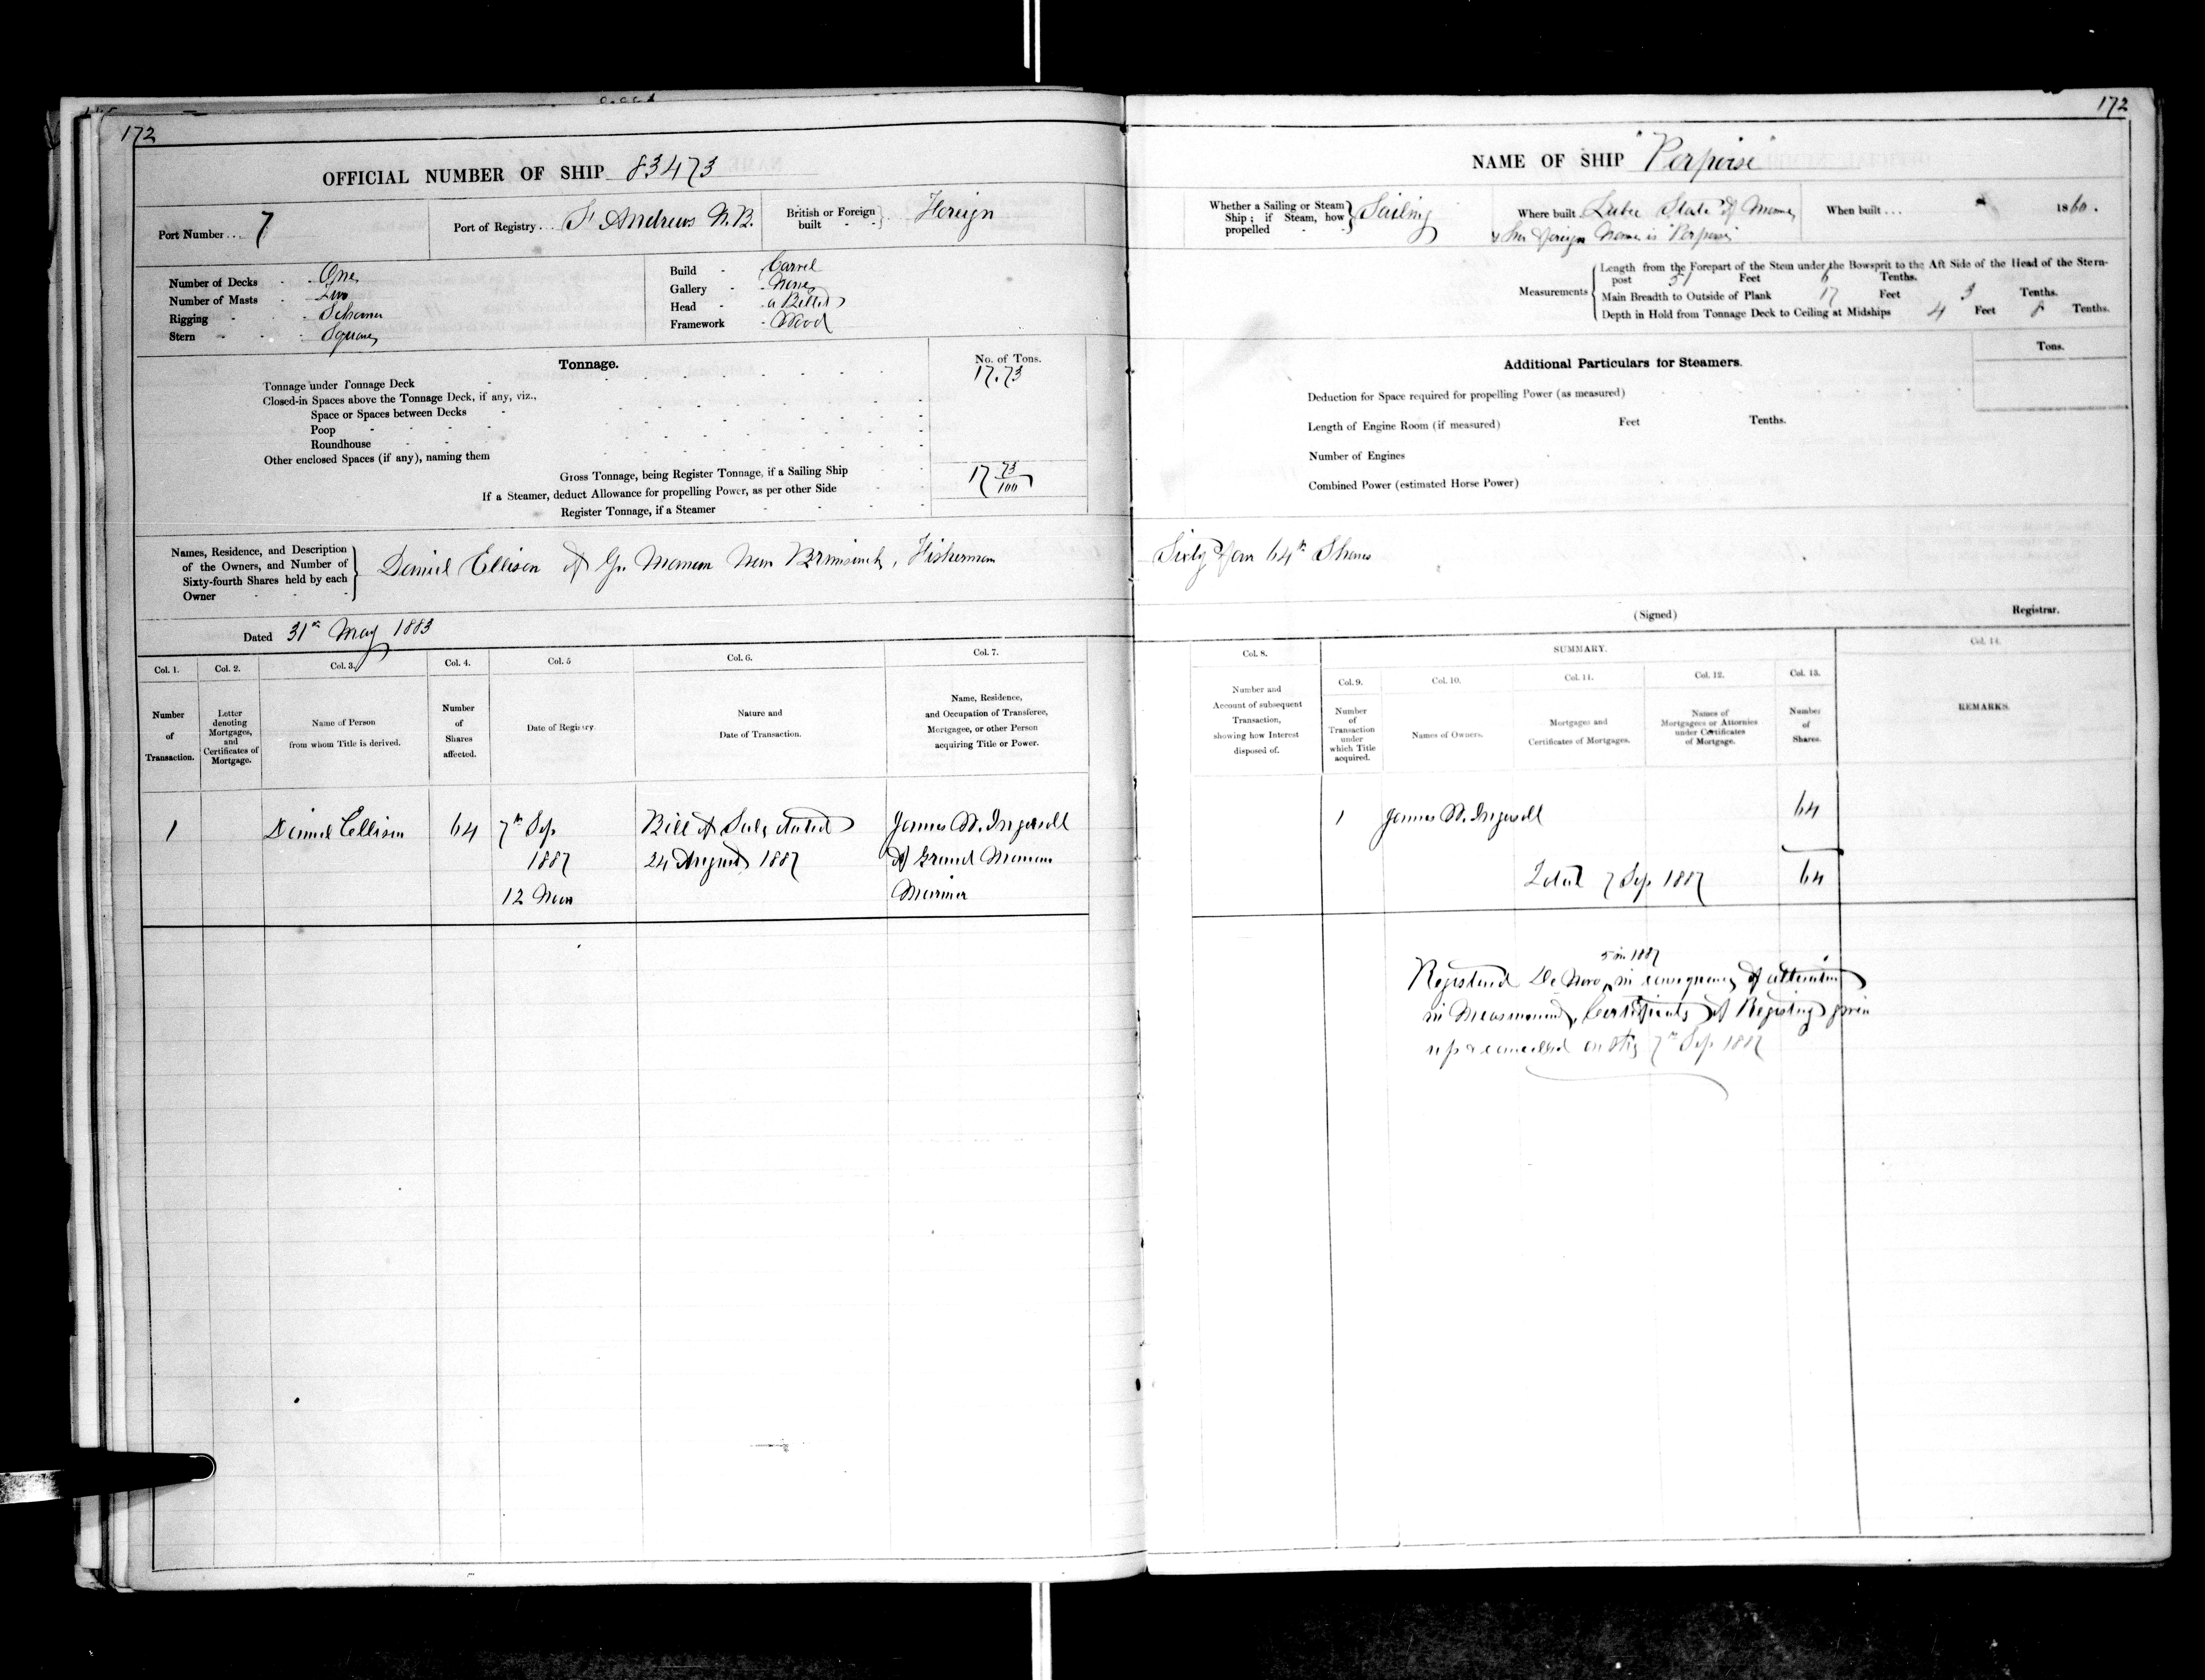 172
OFFICIAL NUMBER OF SHIP 83473
Port Number... 7
Port of Registry... St Andrews N.B.
British or Foreign built - - Foreign
Number of Decks - - One
Number of Masts - - Two
Rigging - - - Schooner
Stern - - - Square
Build - - Carvel
Gallery - - None
Head - - a Billet
Framework - Wood
Tonnage.
No. of Tons.
Tonnage under Tonnage Deck - 17.73
Closed-in Spaces above the Tonnage Deck, if any, viz.,
Space or Spaces between Decks -
Poop - - - -
Roundhouse - -
Other enclosed Spaces (if any), naming them
Gross Tonnage, being Register Tonnage, if a Sailing Ship - 17 73/100
If a Steamer, deduct Allowance for propelling Power, as per other Side
Register Tonnage, if a Steamer
Names, Residence, and Description
of the Owners, and Number of
Sixty-fourth Shares held by each
Owner - - -
Daniel Ellison of Gr. Manan New Brunswick, Fisherman
Dated 31st May 1883
Col. 1.
Number
of
Transaction.
Col. 2.
Letter
denoting
Mortgages,
and
Certificates of
Mortgage.
Col. 3.
Name of Person
from whom Title is derived.
Col. 4.
Number
of
Shares
affected.
Col. 5
Date of Registry.
Col. 6.
Nature and
Date of Transaction.
Col. 7.
Name, Residence,
and Occupation of Transferee,
Mortgagee, or other Person
acquiring Title or Power.
1 Daniel Ellison 64 7th Sep Bill of Sale dated James W. Ingersoll
1887 24 August 1887 of Grand Manan
12 Noon Mariner
172
NAME OF SHIP "Porpoise"
Whether a Sailing or Steam
Ship; if Steam, how
propelled - - Sailing
Where built. Lubec State of Maine
& her foreign Name is "Porpoise"
When built... 1860.
Measurements
Length from the Forepart of the Stem under the Bowsprit to the Aft Side of the Head of the Stern-
post 51 Feet 6 Tenths.
Main Breadth to Outside of Plank 17 Feet 3 Tenths.
Depth in Hold from Tonnage Deck to Ceiling at Midships 4 Feet 8 Tenths.
Additional Particulars for Steamers.
Tons.
Deduction for Space required for propelling Power (as measured)
Length of Engine Room (if measured) Feet Tenths.
Number of Engines
Combined Power (estimated Horse Power)
Sixty four 64th Shares
(Signed) Registrar.
Col. 8.
Number and
Account of subsequent
Transaction,
showing how Interest
disposed of.
SUMMARY.
Col. 9.
Number
of
Transaction
under
which Title
acquired.
Col. 10.
Names of Owners.
Col. 11.
Mortgages and
Certificates of Mortgages.
Col. 12.
Names of
Mortgagees or Attornies
under Certificates
of Mortgage.
Col. 13.
Number
of
Shares.
Col. 14.
REMARKS.
1 James W. Ingersoll 64
Total 7 Sep. 1887 64
5 in 1887
Registered De Novo, in consequence of alteration
in Measurement, Certificate of Registry given
up & cancelled on this 7th Sep 1887